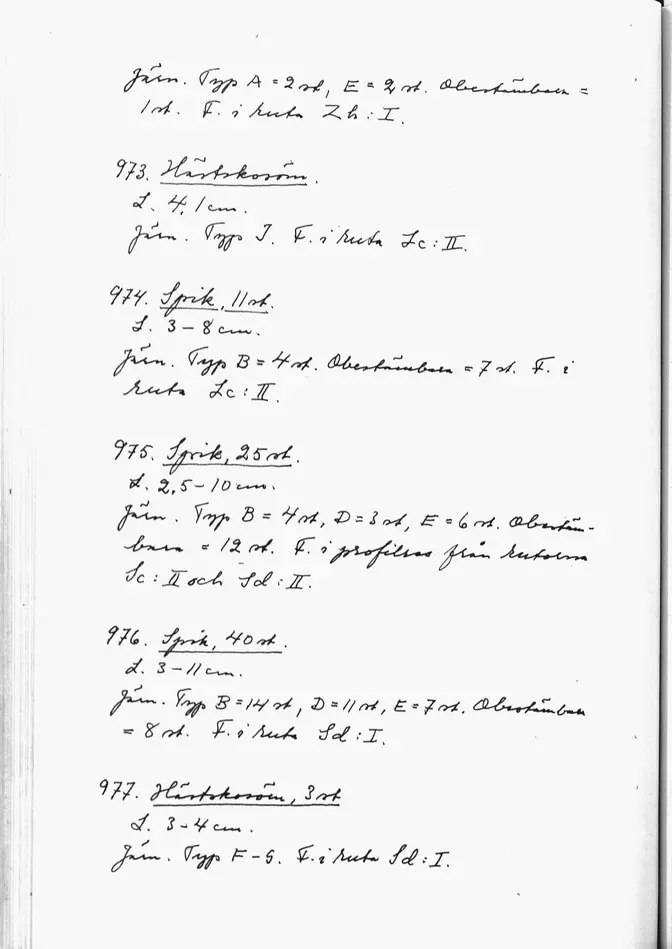 Järn. Typ A = 2 st, E = 2 st. Obestämbara =
1 st. F. i ruta Zh : I.
973. Hästskosöm.
L. 4,1 cm.
Järn. Typ J. F. i ruta Sc : II.
974. Spik, 11 st.
L. 3 - 8 cm.
Järn. Typ B = 4 st. Obestämbara = 7 st. F. i
ruta Sc : II.
975. Spik, 25 st.
L. 2,5 - 10 cm.
Järn. Typ B = 4 st, D = 3 st, E = 6 st. Obestäm-
bara = 12 st. F. i profilras från rutorna
Sc : II och Sd : II.
976. Spik, 40 st.
L. 3 - 11 cm.
Järn. Typ B = 14 st, D = 11 st, E = 7 st. Obestämbara
= 8 st. F. i ruta Sd : I.
977. Hästskosöm, 3 st
L. 3 - 4 cm.
Järn. Typ F - G. F. i ruta Sd : I.